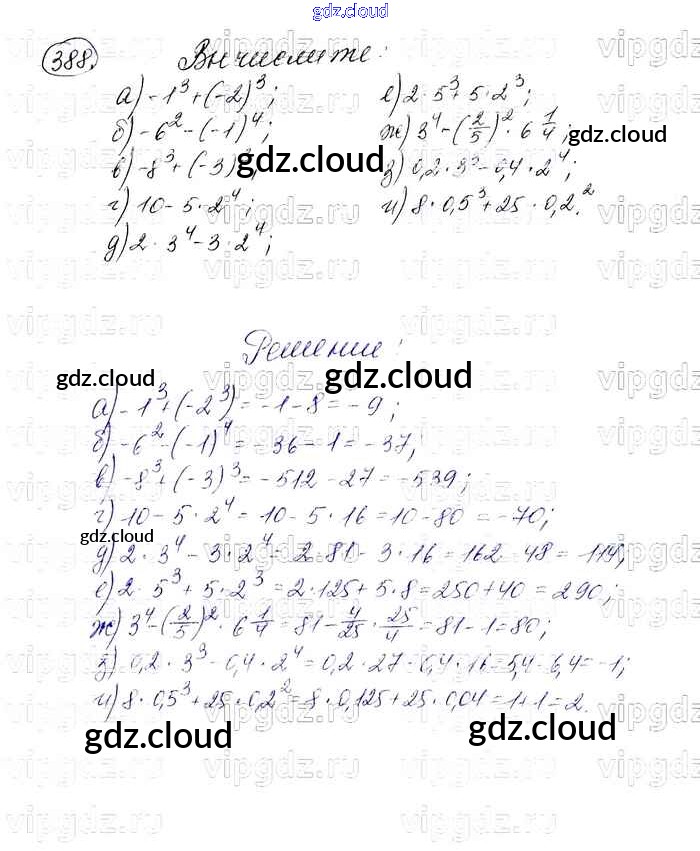 gdz.cloud
388. Вычислите:
а) -1³ + (-2)³;
б) -6² - (-1)⁴;
в) -8³ + (-3)³;
г) 10 - 5 · 2⁴;
д) 2 · 3⁴ - 3 · 2⁴;
е) 2 · 5³ + 5 · 2³;
ж) 3⁴ - (2/5)² · 6 1/4;
з) 0,2 · 3³ - 0,4 · 2⁴;
и) 8 · 0,5³ + 25 · 0,2².
gdz.cloud
Решение:
gdz.cloud
gdz.cloud
а) -1³ + (-2³) = -1 - 8 = -9;
б) -6² - (-1)⁴ = -36 - 1 = -37;
в) -8³ + (-3)³ = -512 - 27 = -539;
г) 10 - 5 · 2⁴ = 10 - 5 · 16 = 10 - 80 = -70;
gdz.cloud
д) 2 · 3⁴ - 3 · 2⁴ = 2 · 81 - 3 · 16 = 162 - 48 = 114;
е) 2 · 5³ + 5 · 2³ = 2 · 125 + 5 · 8 = 250 + 40 = 290;
ж) 3⁴ - (2/5)² · 6 1/4 = 81 - 4/25 · 25/4 = 81 - 1 = 80;
з) 0,2 · 3³ - 0,4 · 2⁴ = 0,2 · 27 - 0,4 · 16 = 5,4 - 6,4 = -1;
и) 8 · 0,5³ + 25 · 0,2² = 8 · 0,125 + 25 · 0,04 = 1 + 1 = 2.
gdz.cloud
gdz.cloud